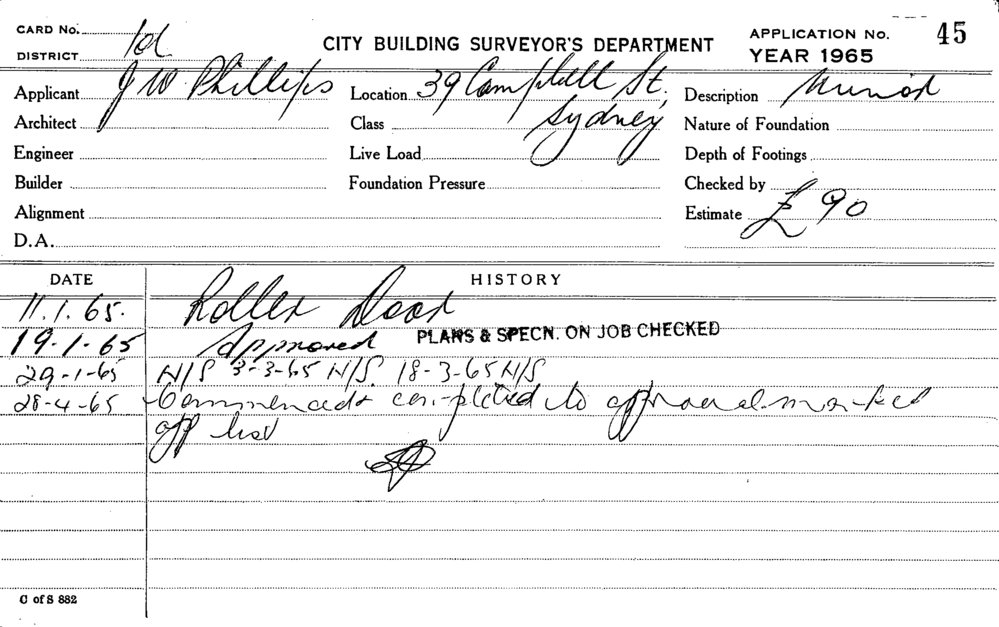 CARD No. 
DISTRICT 1d
CITY BUILDING SURVEYOR'S DEPARTMENT
APPLICATION No. 45
YEAR 1965
Applicant J W Phillips
Location 39 Campbell St,
Sydney
Description
Architect
Class
Nature of Foundation
Engineer
Live Load
Depth of Footings
Builder
Foundation Pressure
Checked by
Alignment
Estimate £90
D.A.
DATE HISTORY
11.1.65. Roller Door
19-1-65 Approved PLANS & SPECN. ON JOB CHECKED
29-1-65 N/S 3-3-65 N/S. 18-3-65 N/S
28-4-65 Commenced & completed to approval marked
off list
C of S 882